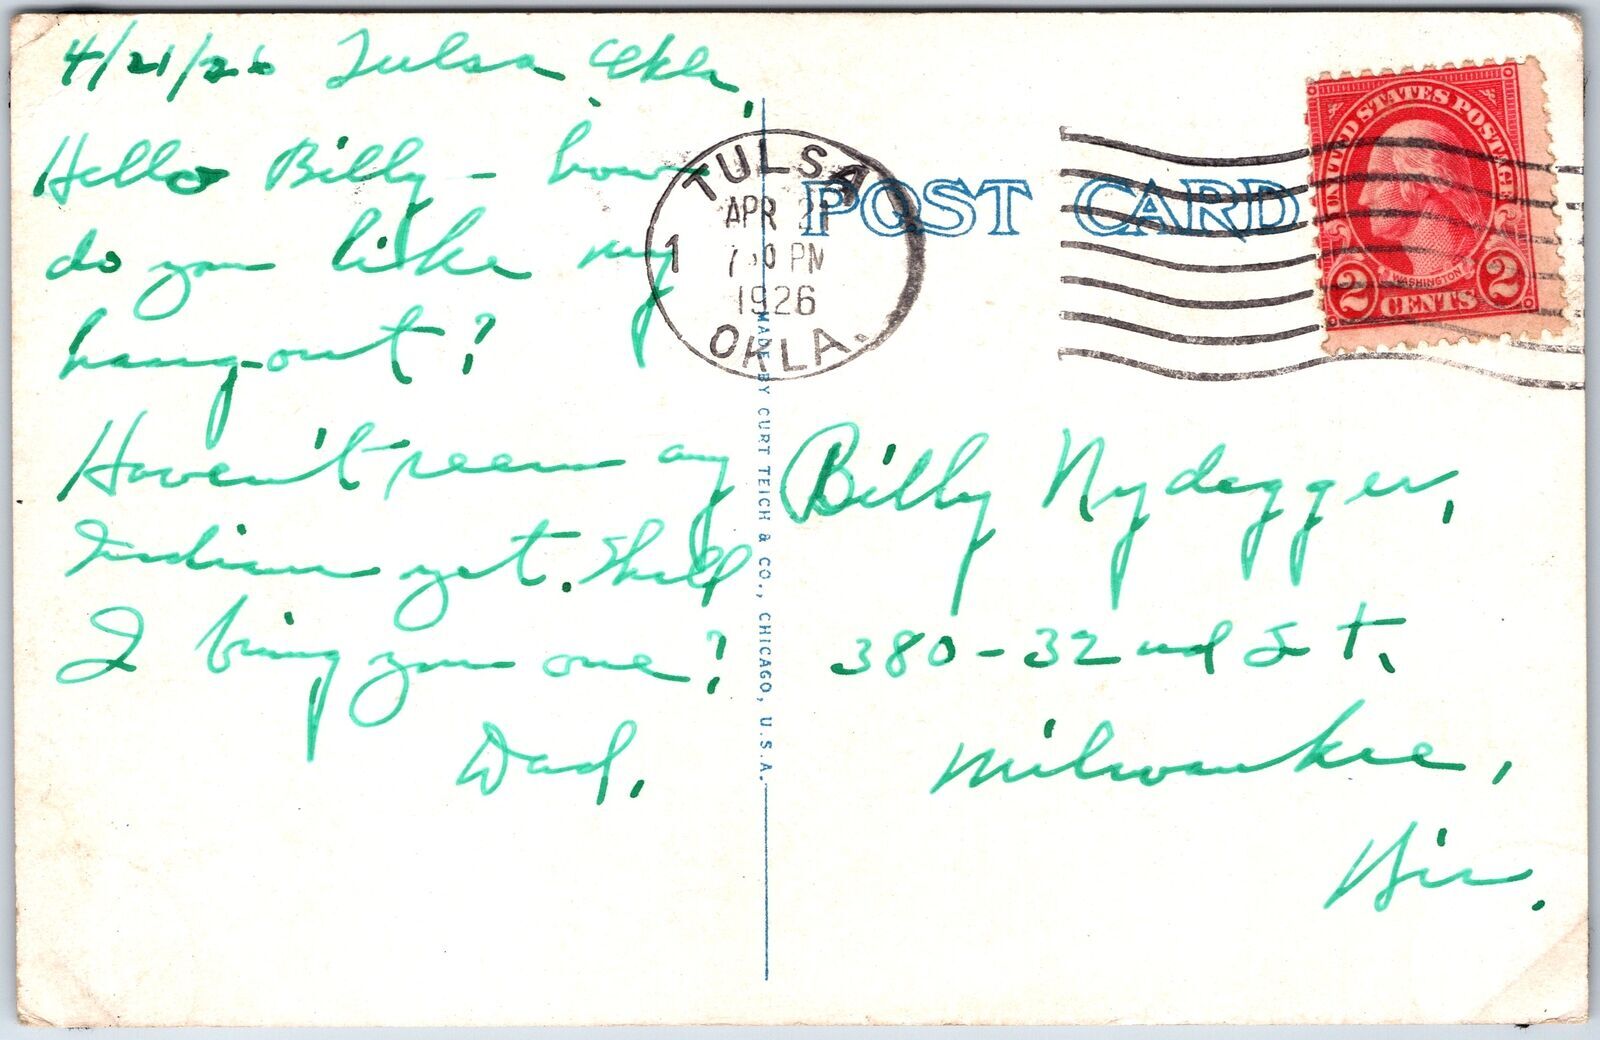 4/21/26 Tulsa Okla,
Hello Billy - how
do you like my
hang-out?
Haven't seen any
Indians yet. Shall
I bring you one?
Dad,
TULSA
APR 21
1
PM
1926
OKLA.
POST CARD
UNITED STATES POSTAGE
WASHINGTON
2 CENTS 2
MADE BY CURT TEICH & CO., CHICAGO, U.S.A.
Billy Nydegger,
380-32nd St,
Milwaukee,
Wis.